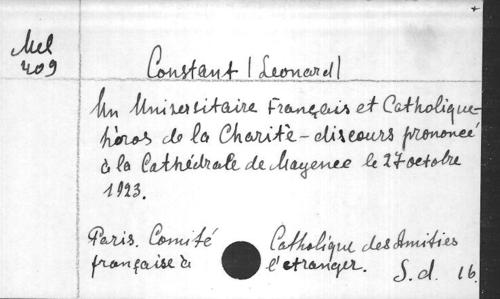 Mel
409
Constant (Leonard)
Un Universitaire Français et Catholique -
héros de la Charité - discours prononcé
à la Cathédrale de Mayence le 27 octobre
1923.
Paris. Comité Catholique des Amitiés
française à l'etranger. S.d. 16.